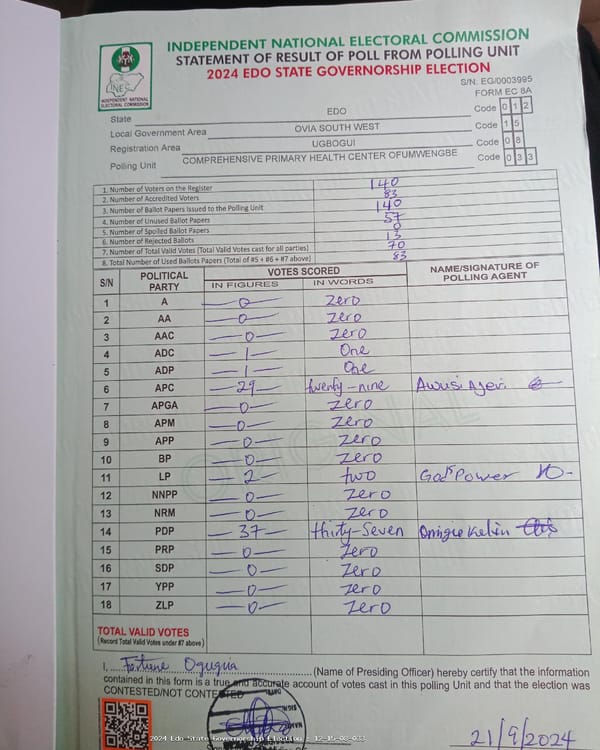 INDEPENDENT NATIONAL ELECTORAL COMMISSION
STATEMENT OF RESULT OF POLL FROM POLLING UNIT
2024 EDO STATE GOVERNORSHIP ELECTION
INEC
INDEPENDENT NATIONAL ELECTORAL COMMISSION
S/N: EG/0003995
FORM EC 8A
State EDO Code 0 1 2
Local Government Area OVIA SOUTH WEST Code 1 5
Registration Area UGBOGUI Code 0 8
Polling Unit COMPREHENSIVE PRIMARY HEALTH CENTER OFUMWENGBE Code 0 3 3
1. Number of Voters on the Register 140
2. Number of Accredited Voters 83
3. Number of Ballot Papers Issued to the Polling Unit 140
4. Number of Unused Ballot Papers 57
5. Number of Spoiled Ballot Papers 0
6. Number of Rejected Ballots 13
7. Number of Total Valid Votes (Total Valid Votes cast for all parties) 70
8. Total Number of Used Ballots Papers (Total of #5 + #6 + #7 above) 83
S/N POLITICAL PARTY VOTES SCORED NAME/SIGNATURE OF POLLING AGENT
IN FIGURES IN WORDS
1 A -0- zero
2 AA -0- zero
3 AAC -0- zero
4 ADC -1- One
5 ADP -1- One
6 APC -29- twenty-nine Awusi Ajevi
7 APGA -0- zero
8 APM -0- zero
9 APP -0- zero
10 BP -0- zero
11 LP -2- two GodsPower
12 NNPP -0- zero
13 NRM -0- zero
14 PDP -37- thirty-Seven Omigie Kelvin
15 PRP -0- zero
16 SDP -0- zero
17 YPP -0- zero
18 ZLP -0- zero
TOTAL VALID VOTES
(Record Total Valid Votes under #7 above)
I, Fortune Ogugua (Name of Presiding Officer) hereby certify that the information
contained in this form is a true and accurate account of votes cast in this polling Unit and that the election was
CONTESTED/NOT CONTESTED
2024 Edo State Governorship Election : 12-15-08-033
21/9/2024